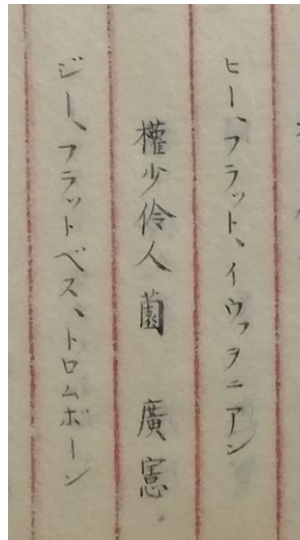 ヒー、フラット、イウァヲニアン
權少伶人薗　廣憲
ジー、フラットベス、トロムボーン